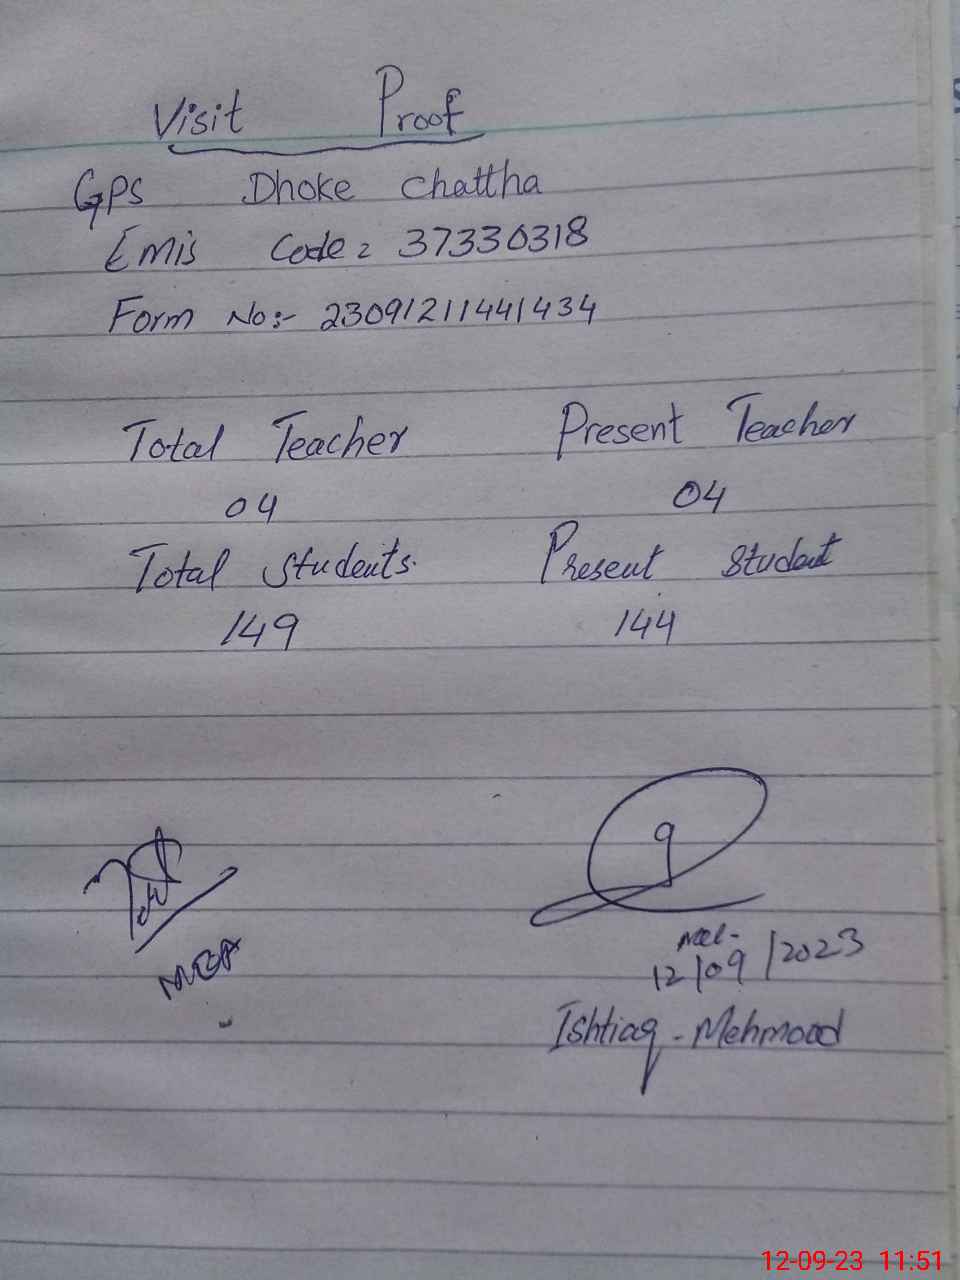 Visit Proof
GPS Dhoke Chattha
Emis Code = 37330318
Form No:- 23091211441434
Total Teacher Present Teacher
04 04
Total Students. Present Student
149 144
MEA
12/09/2023
Ishtiaq - Mehmood
12-09-23 11:51